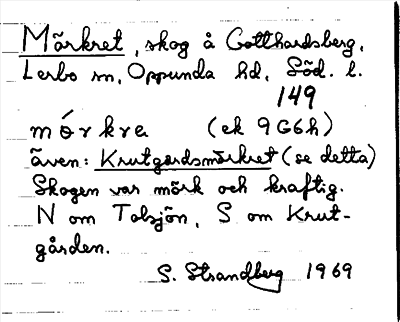 Märkret, skog å Gotthardsberg,
Lerbo sn, Oppunda hd, Söd. l.
149
mǿrkra (ek 9G6h)
även: Krutgårdsmörkret (se detta)
Skogen var mörk och kraftig.
N om Tolsjön, S om Krut-
gården.
S. Strandberg 1969